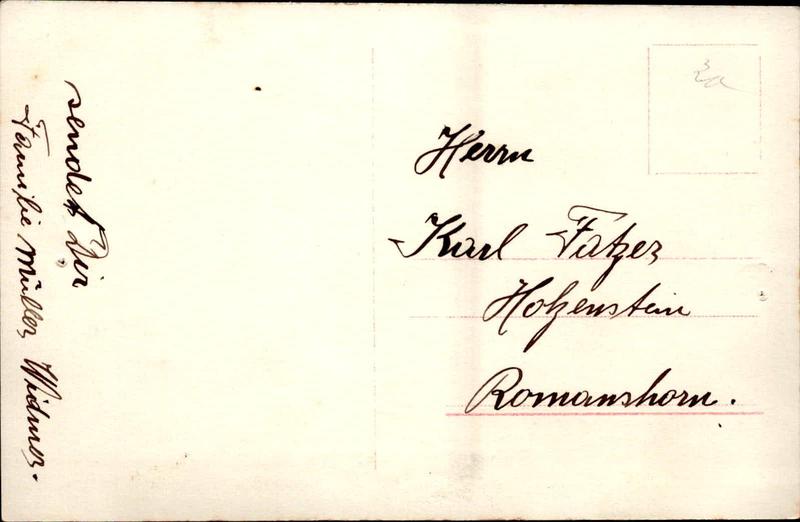 sendet Dir
Familie Müller Widmer.
Herrn
Karl Fatzer
Holzenstein
Romanshorn.